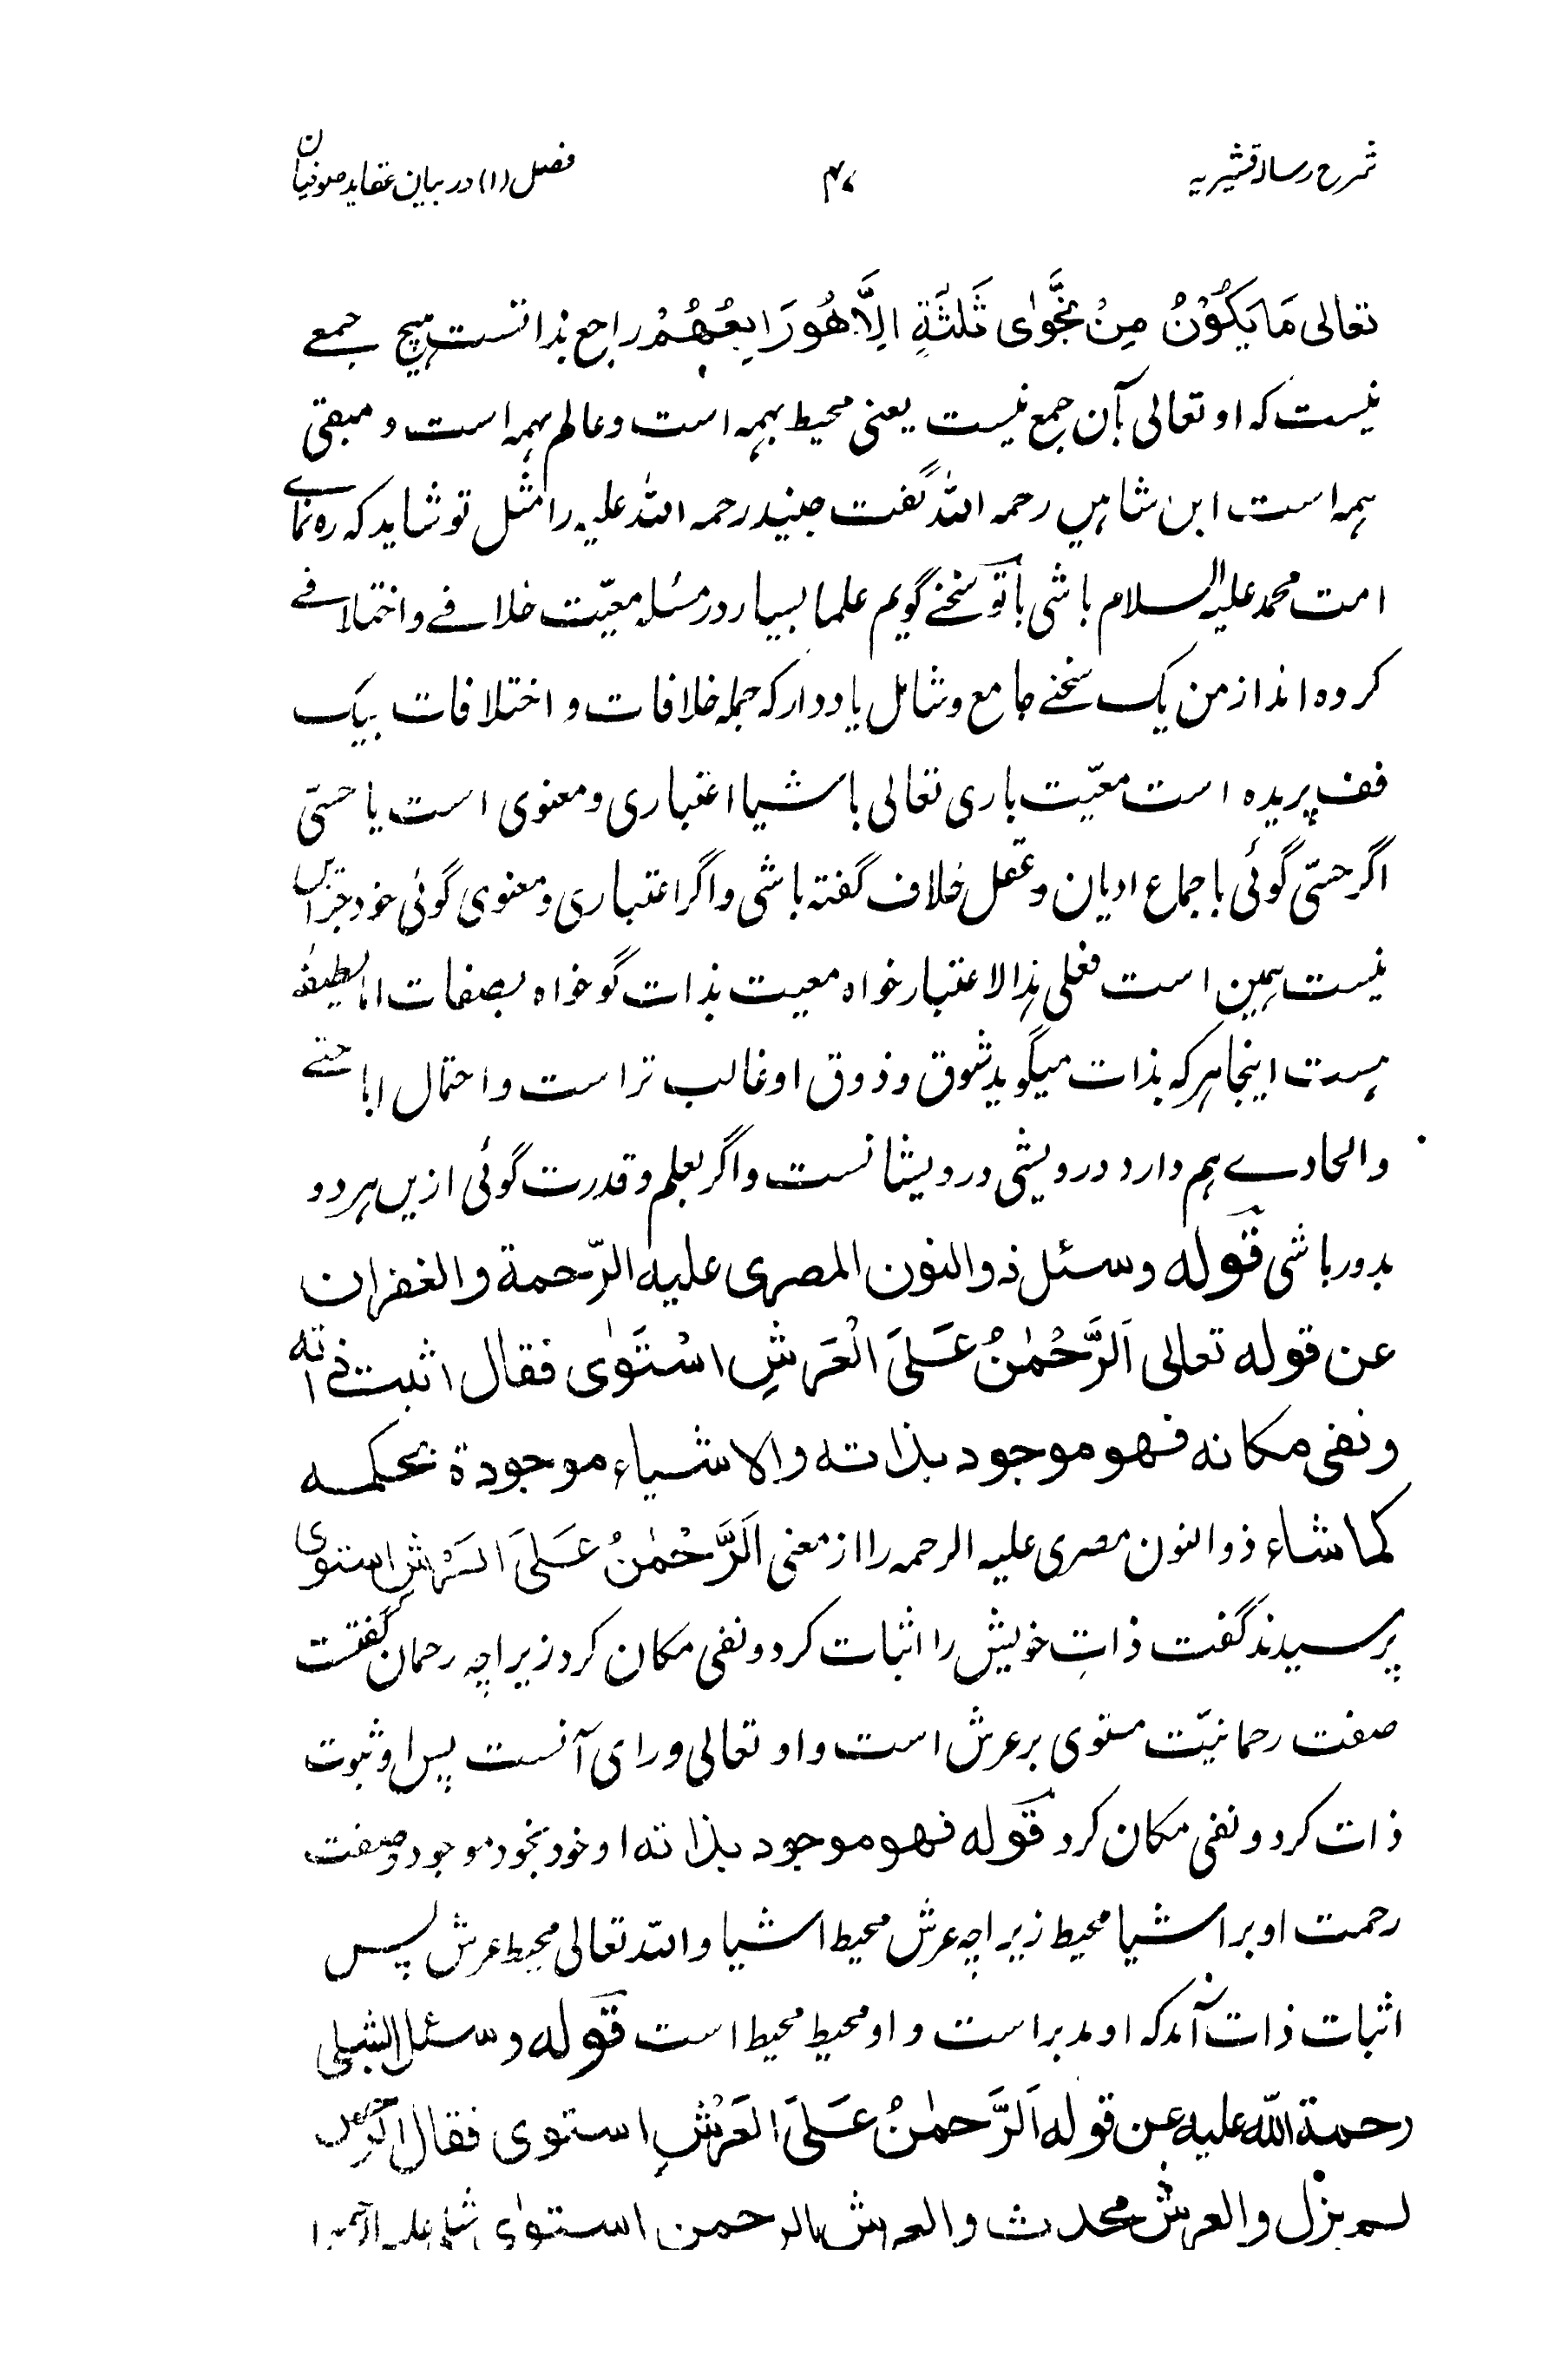 شرح رسالہ قشیریہ
۴۷
فصل (۱) در بیان عقاید صوفیان
تعالی مَا یَکُوْنُ مِنْ نَّجْوٰی ثَلٰثَةٍ اِلَّا هُوَ رَابِعُهُمْ راجع بذاتست هیچ جمعے
نیست که او تعالی بآن جمع نیست یعنی محیط بهمه است و عالم بهمه است و مبقی
همه است ابن شاهین رحمه الله گفت جنید رحمه الله علیه را مثل تو شاید که ره نمائے
امت محمد علیه السلام باشی با تو سخنے گویم علما بسیار در مسئله معیّت خلافے و اختلافے
کرده اند از من یک سخنے جامع و شامل یاد دار که جمله خلافات و اختلافات بیک
فف پریده است معیّت باری تعالی با شیا اعتباری و معنوی است یا حسّی
اگر حسّی گوئی با جماع ادیان و عقل خلاف گفته باشی و اگر اعتباری و معنوی گوئی خود جز این
نیست همین است فعلی هذا الاعتبار خواه معیت بذات گو خواه بصفات اما لطیفه
هست اینجا هر که بذات میگوید شوق و ذوق او غالب تر است و احتمال اباحتے
و الحادے هم دارد درویشی درویشانست و اگر بعلم و قدرت گوئی ازین هر دو
بدور باشی قوله وسئل ذو النون المصری علیه الرّحمة والغفران
عن قوله تعالی اَلرَّحْمٰنُ عَلَی الْعَرْشِ اسْتَوٰی فقال اثبت ذاته
ونفی مکانه فهو موجود بذاته والاشیاء موجودة بحکمه
کما شاء ذو النون مصری علیه الرحمه را از معنی اَلرَّحْمٰنُ عَلَی العَرْشِ استوی
پرسیدند گفت ذاتِ خویش را اثبات کرد و نفی مکان کرد زیراچه رحمان گفتست
صفت رحمانیّت مستوی بر عرش است و او تعالی ورای آنست پس او ثبوت
ذات کرد و نفی مکان کرد قوله فهو موجود بذاته او خود بخود موجود و صفت
رحمت او بر اشیا محیط زیراچه عرش محیط اشیا و الله تعالی محیط عرش پس
اثبات ذات آمد که او مدبر است و او محیط محیط است قوله وسئل الشبلی
رحمة الله علیه عن قوله اَلرَّحمٰنُ عَلَی العَرْشِ استوی فقال الرحمن
لم یزل والعرش محدث والعرش بالرحمن استوٰی شبلی علیه الرحمه را